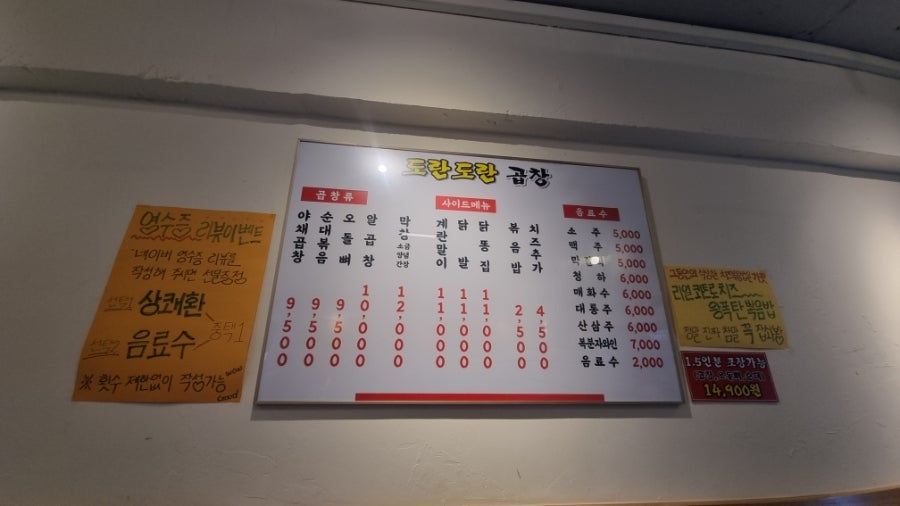 도란도란 곱창
곱창류
야채곱창 9,500
순대볶음 9,500
오돌뼈 9,500
알곱창 10,000
막창 소금 양념 간장 12,000
사이드메뉴
계란말이 11,000
닭발 11,000
닭똥집 11,000
볶음밥 2,500
치즈추가 4,500
음료수
소주 5,000
맥주 5,000
막걸리 5,000
청하 6,000
매화수 6,000
대통주 6,000
산삼주 6,000
복분자와인 7,000
음료수 2,000
영수증 리뷰이벤트
네이버 영수증 리뷰를
작성해 주시면 선물증정
선택1 상쾌환
선택2 음료수
중택1
※ 횟수 제한없이 작성가능
리얼 치즈
볶음밥
꼭
1.5인분 포장가능
14,900원